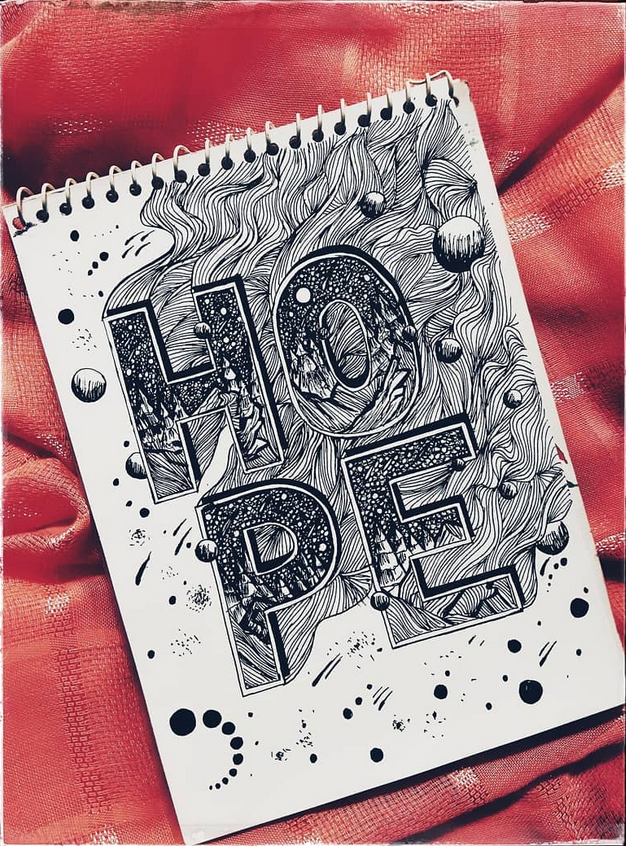 HO
PE